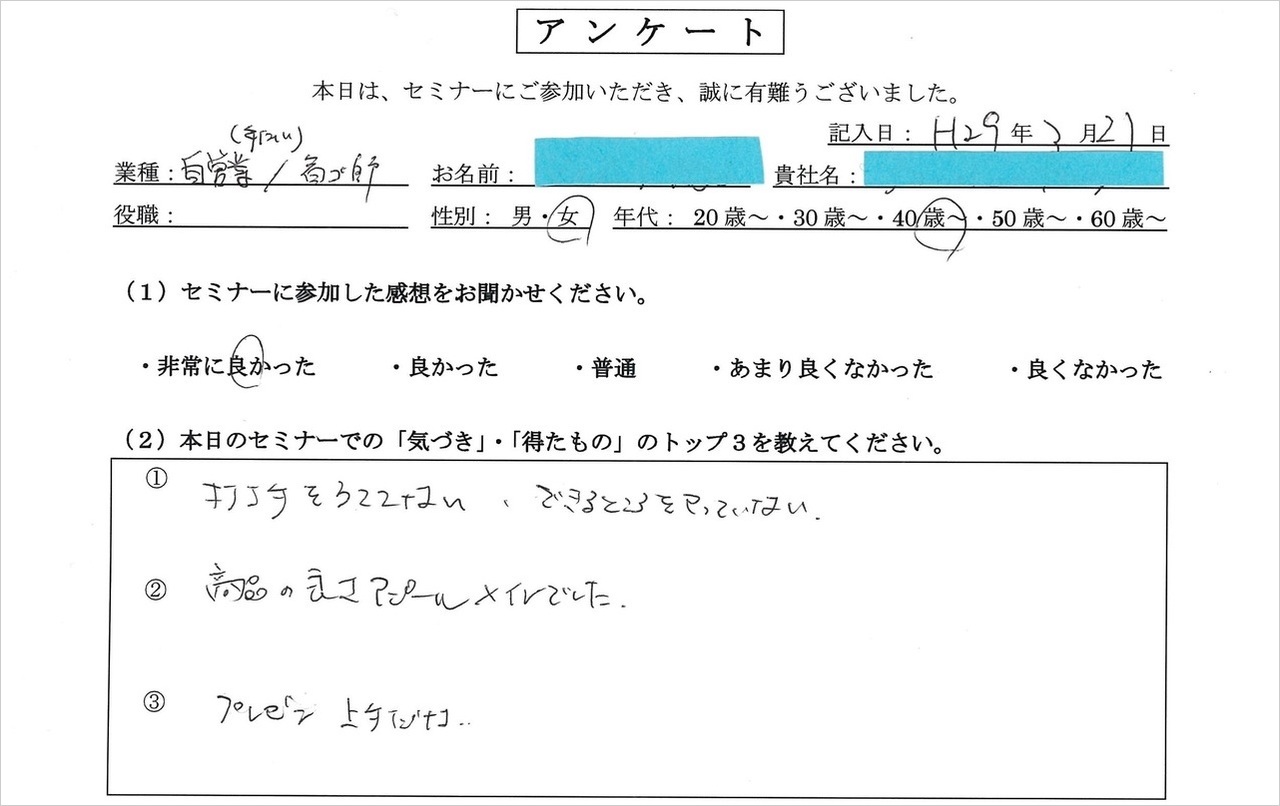 アンケート
本日は、セミナーにご参加いただき、誠に有難うございました。
記入日： H29年 月21日
業種：自営業／看ゴ師 お名前： 貴社名：
役職： 性別： 男・女 年代： 20歳～・30歳～・40歳～・50歳～・60歳～
（1）セミナーに参加した感想をお聞かせください。
・非常に良かった ・良かった ・普通 ・あまり良くなかった ・良くなかった
（2）本日のセミナーでの「気づき」・「得たもの」のトップ3を教えてください。
① 、できるところをやっていない.
② 商品の良さアピールメインでした.
③ プレゼン 上手だなー..